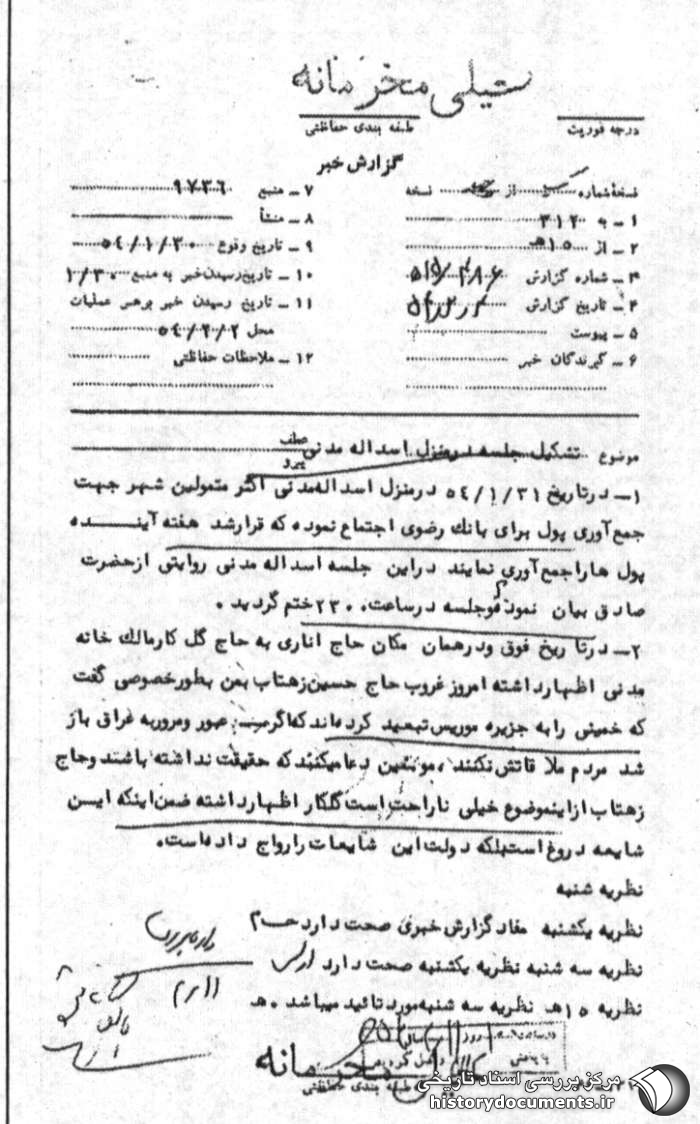 خیلی محرمانه
درجه فوریت
طبقه بندی حفاظتی
گزارش خبر
نسخهٔ شماره از نسخه
۱ ـ به ۳۱۲
۲ ـ از ۱۵هـ
۳ ـ شماره گزارش
۴ ـ تاریخ گزارش
۵ ـ پیوست
۶ ـ گیرندگان خبر
۷ ـ منبع ۹۷۳۶
۸ ـ منشأ
۹ ـ تاریخ وقوع ۵۴/۱/۳۰
۱۰ ـ تاریخ رسیدن خبر به منبع ۱/۳۰
۱۱ ـ تاریخ رسیدن خبر برهبر عملیات
محل ۵۴/۲/۲
۱۲ ـ ملاحظات حفاظتی
موضوع تشکیل جلسه درمنزل اسداله مدنی
عطف
پیرو
۱ـ درتاریخ ۵۴/۱/۳۱ درمنزل اسداله مدنی اکثر متمولین شهر جهت
جمع آوری پول برای بانک رضوی اجتماع نموده که قرارشد هفته آینده
پول هاراجمع آوری نمایند دراین جلسه اسداله مدنی روایتی ازحضرت
صادق بیان نمود وجلسه درساعت ۲۳۰ ختم گردید .
۲ـ درتا ریخ فوق ودرهمان مکان حاج اناری به حاج گل کارمالک خانه
مدنی اظهارداشته امروز غروب حاج حسین زهتاب بمن بطورخصوصی گفت
که خمینی رابه جزیره موریس تبعید کرده اند که اگر عبور ومروربه عراق باز
شد مردم ملا قاتش نکنند ، مومنین دعا میکنند که حقیقت نداشته باشند وحاج
زهتاب ازاینموضوع خیلی ناراحت است گلکار اظهارداشته ضمن اینکه ایسن
شایعه دروغ است بلکه دولت این شایعات رارواج داده است.
نظریه شنبه
نظریه یکشنبه مفاد گزارش خبری صحت دارد
نظریه سه شنبه نظریه یکشنبه صحت دارد
نظریه ۱۵هـ نظریه سه شنبه مورد تائید میباشد . هـ
خیلی محرمانه
طبقه بندی حفاظتی
مرکز بررسی اسناد تاریخی
historydocuments.ir